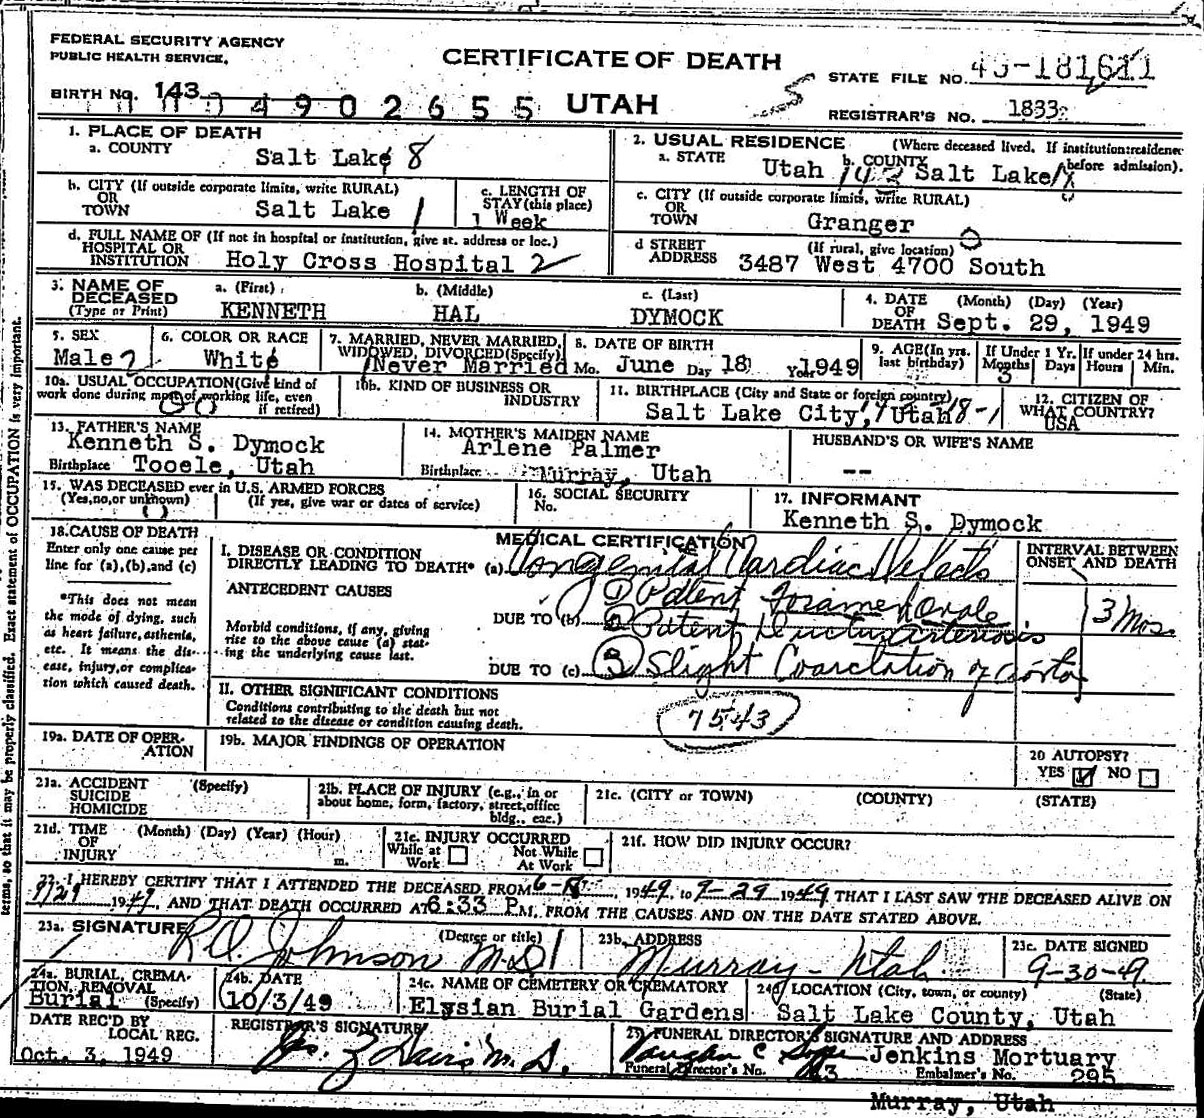 FEDERAL SECURITY AGENCY
PUBLIC HEALTH SERVICE.
CERTIFICATE OF DEATH
STATE FILE NO.
BIRTH NO. 143
04902655 UTAH
REGISTRAR'S NO. 1833
1. PLACE OF DEATH
a. COUNTY
Salt Lake 8
2. USUAL RESIDENCE (Where deceased lived. If institution:residence before admission).
a. STATE Utah b. COUNTY Salt Lake
b. CITY (If outside corporate limits, write RURAL)
OR
TOWN Salt Lake 1
c. LENGTH OF
STAY (this place)
1 Week
c. CITY (If outside corporate limits, write RURAL)
OR
TOWN Granger
d. FULL NAME OF (If not in hospital or institution, give st. address or loc.)
HOSPITAL OR
INSTITUTION Holy Cross Hospital 2
d STREET (If rural, give location)
ADDRESS 3487 West 4700 South
3. NAME OF
DECEASED
(Type or Print)
a. (First) KENNETH
b. (Middle) HAL
c. (Last) DYMOCK
4. DATE (Month) (Day) (Year)
OF
DEATH Sept. 29, 1949
5. SEX
Male 2
6. COLOR OR RACE
White
7. MARRIED, NEVER MARRIED,
WIDOWED, DIVORCED(Specify)
Never Married
8. DATE OF BIRTH
Mo. June Day 18 Year 1949
9. AGE(In yrs.
last birthday)
If Under 1 Yr.
Months Days
3
If under 24 hrs.
Hours Min.
10a. USUAL OCCUPATION(Give kind of
work done during most of working life, even
if retired)
10b. KIND OF BUSINESS OR
INDUSTRY
11. BIRTHPLACE (City and State or foreign country)
Salt Lake City, Utah
12. CITIZEN OF
WHAT COUNTRY?
USA
13. FATHER'S NAME
Kenneth S. Dymock
Birthplace Tooele, Utah
14. MOTHER'S MAIDEN NAME
Arlene Palmer
Birthplace Murray, Utah
HUSBAND'S OR WIFE'S NAME
--
15. WAS DECEASED ever in U.S. ARMED FORCES
(Yes,no,or unknown) (If yes, give war or dates of service)
0
16. SOCIAL SECURITY
No.
17. INFORMANT
Kenneth S. Dymock
18.CAUSE OF DEATH
Enter only one cause per
line for (a),(b),and (c)
*This does not mean
the mode of dying, such
as heart failure, asthenia,
etc. It means the dis-
ease, injury,or complica-
tion which caused death.
MEDICAL CERTIFICATION
I. DISEASE OR CONDITION
DIRECTLY LEADING TO DEATH* (a) Congenital Cardiac Defects
ANTECEDENT CAUSES
① Patent Foramen Ovale
Morbid conditions, if any, giving
rise to the above cause (a) stat-
ing the underlying cause last.
DUE TO (b) ② Patent Ductus Arteriosis
DUE TO (c) ③ Slight Coarctation of Aorta
INTERVAL BETWEEN
ONSET AND DEATH
3 Mos.
II. OTHER SIGNIFICANT CONDITIONS
Conditions contributing to the death but not
related to the disease or condition causing death.
7543
19a. DATE OF OPER-
ATION
19b. MAJOR FINDINGS OF OPERATION
20 AUTOPSY?
YES ☑ NO ☐
21a. ACCIDENT (Specify)
SUICIDE
HOMICIDE
21b. PLACE OF INJURY (e.g., in or
about home, form, factory, street,office
bldg., eac.)
21c. (CITY or TOWN) (COUNTY) (STATE)
21d. TIME (Month) (Day) (Year) (Hour)
OF
INJURY m.
21e. INJURY OCCURRED
While at Work ☐ Not While At Work ☐
21f. HOW DID INJURY OCCUR?
22. I HEREBY CERTIFY THAT I ATTENDED THE DECEASED FROM 6-18 1949, to 9-29 1949 THAT I LAST SAW THE DECEASED ALIVE ON
9/29 1949, AND THAT DEATH OCCURRED AT 6:33 P.M. FROM THE CAUSES AND ON THE DATE STATED ABOVE.
23a. SIGNATURE (Degree or title)
R.O. Johnson M.D.
23b. ADDRESS
Murray - Utah
23c. DATE SIGNED
9-30-49.
24a. BURIAL, CREMA-
TION, REMOVAL
Burial (Specify)
24b. DATE
10/3/49
24c. NAME OF CEMETERY OR CREMATORY
Elysian Burial Gardens
24d LOCATION (City, town, or county) (State)
Salt Lake County, Utah
DATE REC'D BY
LOCAL REG.
Oct. 3, 1949
REGISTRAR'S SIGNATURE
Davis M.D.
25 FUNERAL DIRECTOR'S SIGNATURE AND ADDRESS
Vaughn C Jenkins Mortuary
Funeral Director's No. Embalmer's No. 295
Murray, Utah
terms, so that it may be properly classified. Exact statement of OCCUPATION is very important.